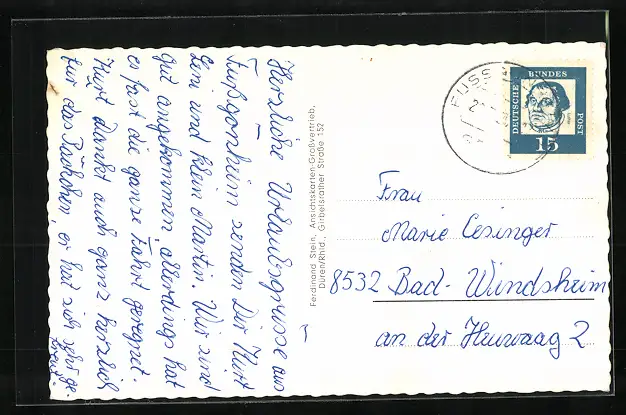 Herzliche Urlaubsgrüsse aus
Fußgönheim senden Dir Kurt
Leni und klein Martin. Wir sind
gut angekommen, allerdings hat
es fast die ganze Fahrt geregnet.
Kurt dankt auch ganz herzlich
für das Päckchen, er hat sich sehr ge-
freut.
Ferdinand Stein, Ansichtskarten-Großvertrieb,
Düren/Rhld., Girbelsrather Straße 152
FUSSG
DEUTSCHE
BUNDES
POST
15
Frau
Marie Cesinger
8532 Bad-Windsheim
an der Heuwaag 2